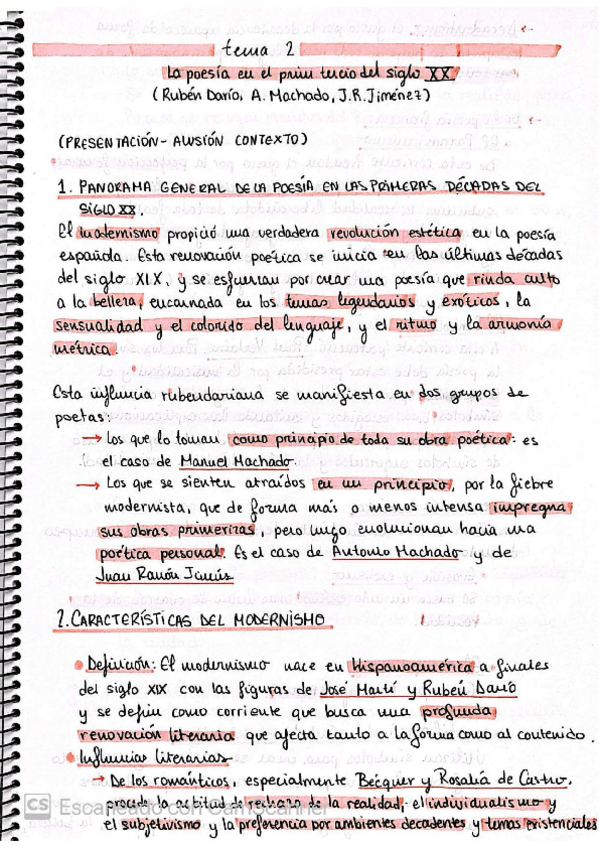 tema 2
La poesía en el prim tercio del siglo XX
(Rubén Darío, A. Machado, J.R. Jiménez)
(PRESENTACIÓN - ALUSIÓN CONTEXTO)
1. PANORAMA GENERAL DE LA POESÍA EN LAS PRIMERAS DÉCADAS DEL
SIGLO XX.
El modernismo propició una verdadera revolución estética en la poesía
española. Esta renovación poética se inicia en las últimas décadas
del siglo XIX, y se esfuerzan por crear una poesía que rinda culto
a la belleza, encarnada en los temas legendarios y exóticos, la
sensualidad y el colorido del lenguaje, y el ritmo y la armonía
métrica.
Esta influencia rubendariana se manifiesta en dos grupos de
poetas:
→ Los que lo toman como principio de toda su obra poética: es
el caso de Manuel Machado.
→ Los que se sienten atraídos en un principio, por la fiebre
modernista, que de forma más o menos intensa impregna
sus obras primerizas, pero luego evolucionan hacia una
poética personal. Es el caso de Antonio Machado y de
Juan Ramón Jiménez
2. CARACTERÍSTICAS DEL MODERNISMO
• Definición: El modernismo nace en Hispanoamérica a finales
del siglo XIX con las figuras de José Martí y Rubén Darío
y se define como corriente que busca una profunda
renovación literaria que afecta tanto a la forma como al contenido.
• Influencias literarias
→ De los románticos, especialmente Bécquer y Rosalía de Castro,
procede la actitud de rechazo de la realidad, el individualismo y
el subjetivismo y la preferencia por ambientes decadentes y temas existenciales
CS Escaneado con CamScanner